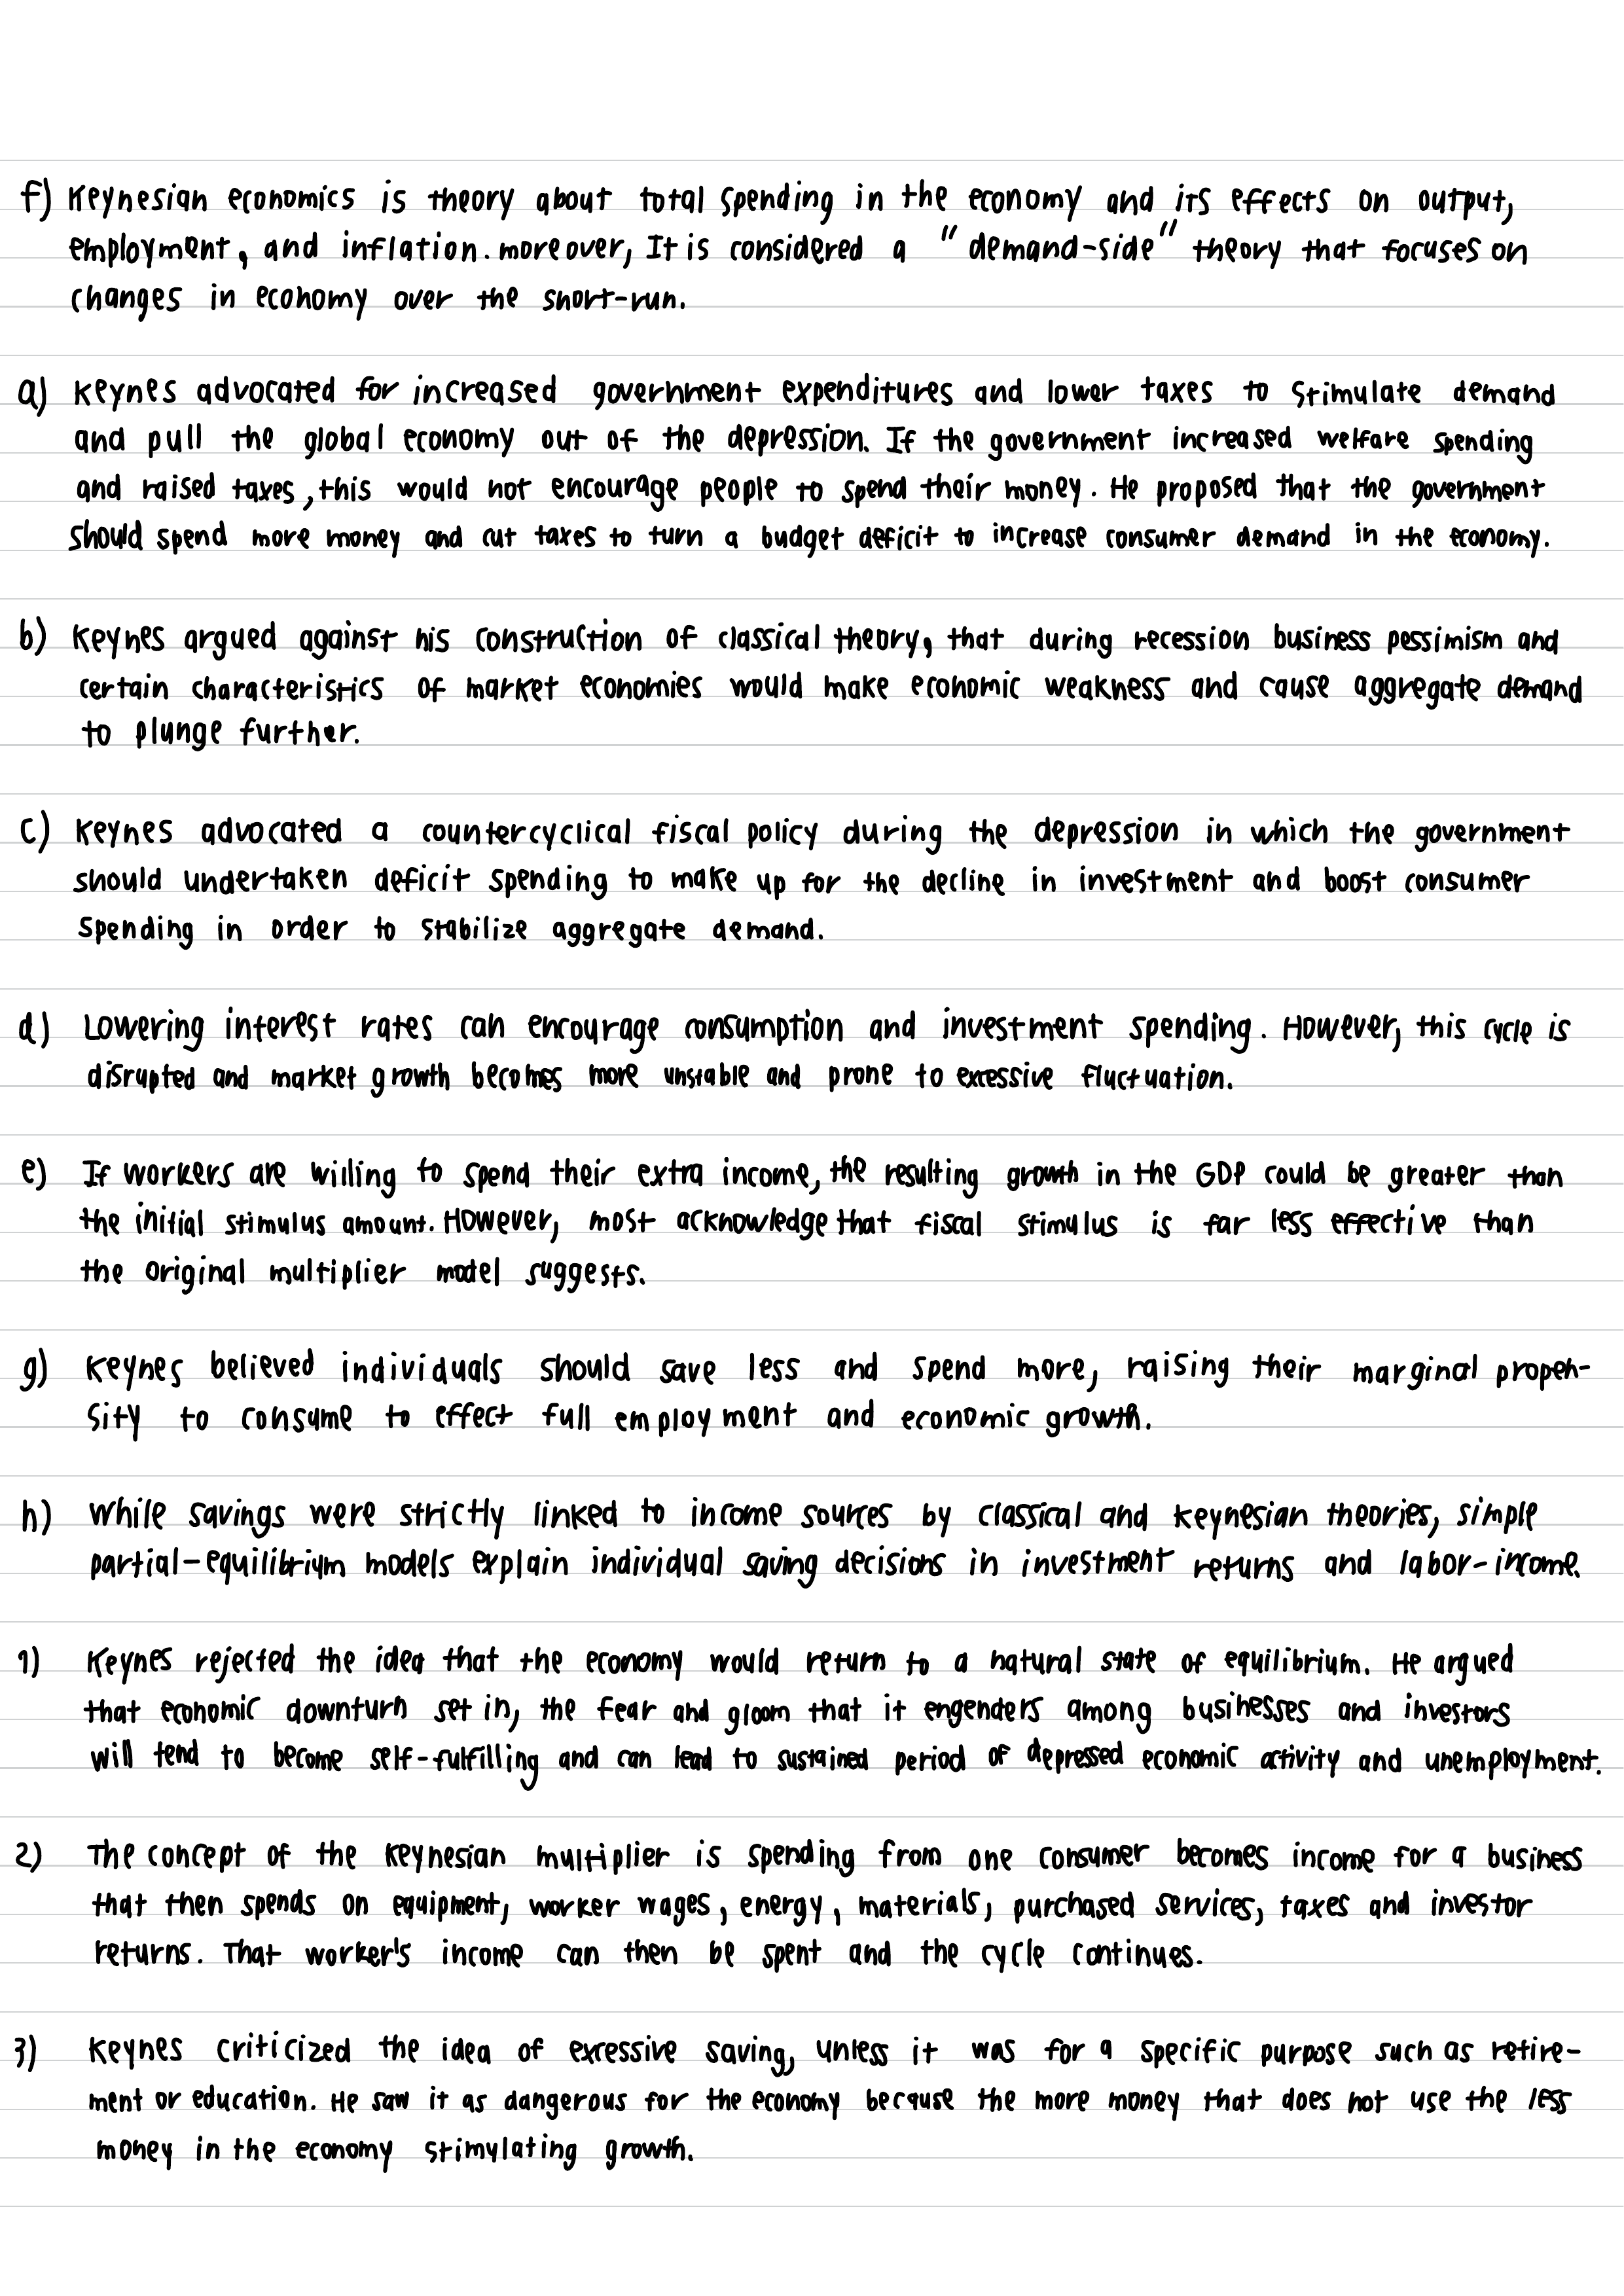 f) Keynesian economics is theory about total spending in the economy and its effects on output,
employment, and inflation. moreover, It is considered a "demand-side" theory that focuses on
changes in economy over the short-run.
a) Keynes advocated for increased government expenditures and lower taxes to stimulate demand
and pull the global economy out of the depression. If the government increased welfare spending
and raised taxes, this would not encourage people to spend their money. He proposed that the government
should spend more money and cut taxes to turn a budget deficit to increase consumer demand in the economy.
b) Keynes argued against his construction of classical theory, that during recession business pessimism and
certain characteristics of market economies would make economic weakness and cause aggregate demand
to plunge further.
c) Keynes advocated a countercyclical fiscal policy during the depression in which the government
should undertaken deficit spending to make up for the decline in investment and boost consumer
spending in order to stabilize aggregate demand.
d) Lowering interest rates can encourage consumption and investment spending. However, this cycle is
disrupted and market growth becomes more unstable and prone to excessive fluctuation.
e) If workers are willing to spend their extra income, the resulting growth in the GDP could be greater than
the initial stimulus amount. However, most acknowledge that fiscal stimulus is far less effective than
the original multiplier model suggests.
g) Keynes believed individuals should save less and spend more, raising their marginal propen-
sity to consume to effect full employment and economic growth.
h) While savings were strictly linked to income sources by classical and keynesian theories, simple
partial-equilibrium models explain individual saving decisions in investment returns and labor-income.
1) Keynes rejected the idea that the economy would return to a natural state of equilibrium. He argued
that economic downturn set in, the fear and gloom that it engenders among businesses and investors
will tend to become self-fulfilling and can lead to sustained period of depressed economic activity and unemployment.
2) The concept of the Keynesian multiplier is spending from one consumer becomes income for a business
that then spends on equipment, worker wages, energy, materials, purchased services, taxes and investor
returns. That worker's income can then be spent and the cycle continues.
3) Keynes criticized the idea of excessive saving, unless it was for a specific purpose such as retire-
ment or education. He saw it as dangerous for the economy because the more money that does not use the less
money in the economy stimulating growth.